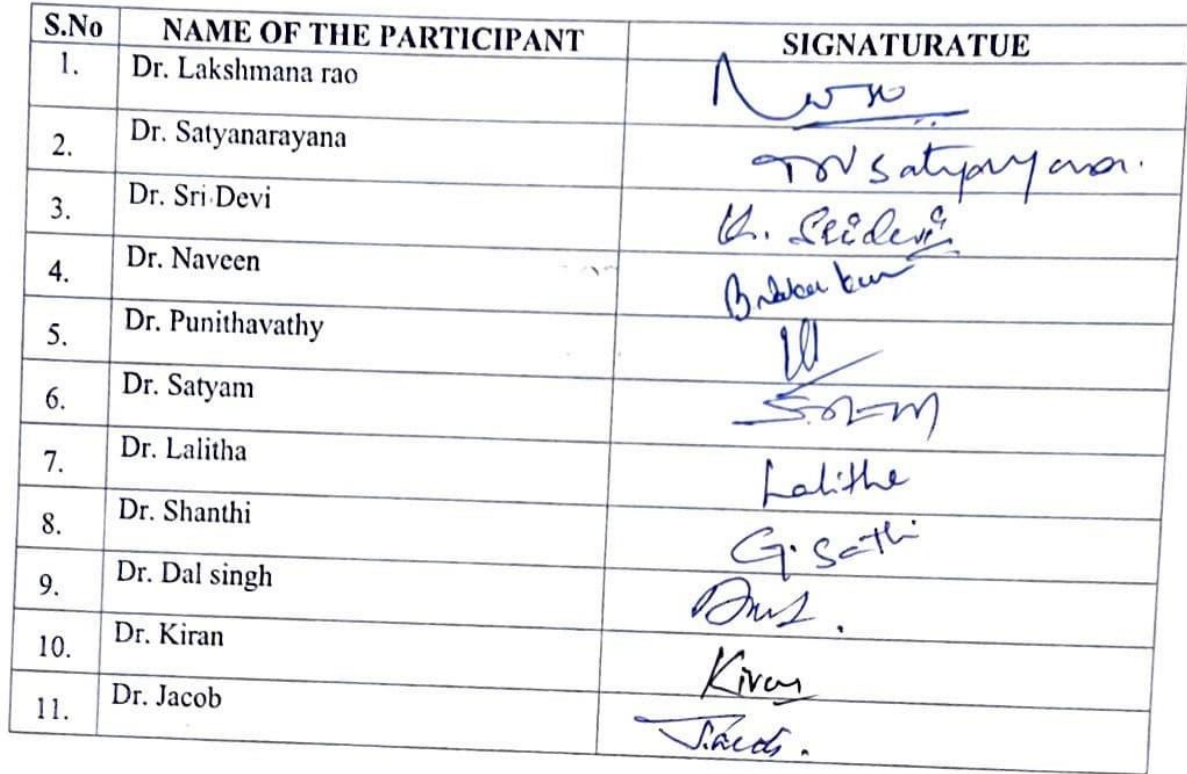 S.No NAME OF THE PARTICIPANT SIGNATURATUE
1. Dr. Lakshmana rao
2. Dr. Satyanarayana
3. Dr. Sri Devi K. Sridevi
4. Dr. Naveen
5. Dr. Punithavathy
6. Dr. Satyam
7. Dr. Lalitha Lalitha
8. Dr. Shanthi
9. Dr. Dal singh
10. Dr. Kiran Kiran
11. Dr. Jacob